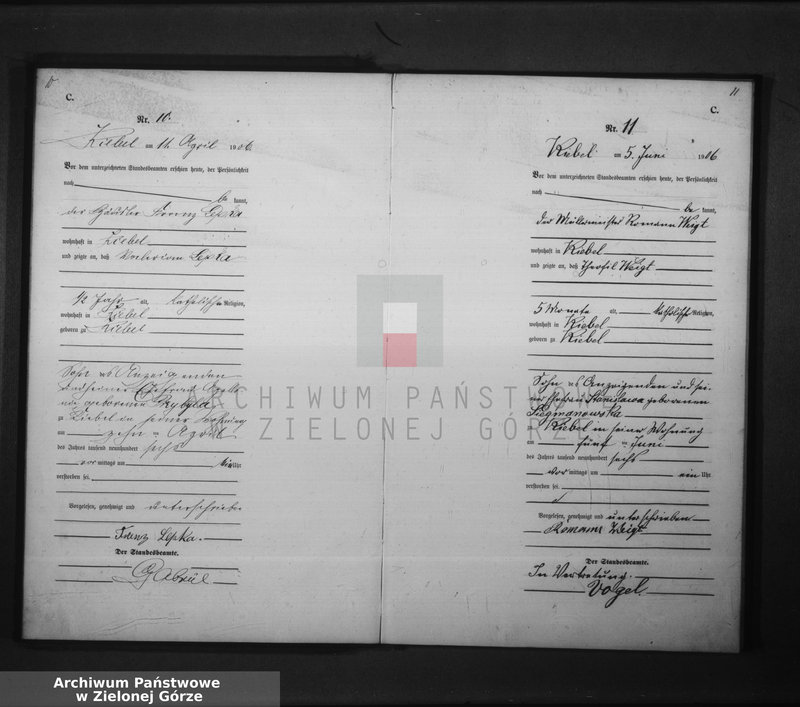 10
C.
Nr. 10.
Kiebel am 11. April 1906
Vor dem unterzeichneten Standesbeamten erschien heute, der Persönlichkeit
nach
be kannt,
der Häusler Franz Lepka
wohnhaft in Kiebel
und zeigte an, daß Lepka
1/2 Jahr alt, katholischer Religion,
wohnhaft in Kiebel
geboren zu Kiebel
Sohn des Anzeigenden
und seiner Ehefrau
geborenen
zu Kiebel in seiner Wohnung
am zehn ten April
des Jahres tausend neunhundert sechs
vor mittags um Uhr
verstorben sei.
Vorgelesen, genehmigt und unterschrieben
Franz Lepka.
Der Standesbeamte.
Gabriel
11
C.
Nr. 11
Kiebel am 5. Juni 1906
Vor dem unterzeichneten Standesbeamten erschien heute, der Persönlichkeit
nach
be kannt,
der Müllermeister Romann Weigt
wohnhaft in Kiebel
und zeigte an, daß Theofil Weigt
5 Monate alt, katholischer Religion,
wohnhaft in Kiebel
geboren zu Kiebel
Sohn des Anzeigenden und sei-
ner Ehefrau Stanislawa geborenen
Kiebel in seiner Wohnung
am fünf ten Juni
des Jahres tausend neunhundert sechs
vor mittags um ein Uhr
verstorben sei.
Vorgelesen, genehmigt und unterschrieben
Romann Weigt
Der Standesbeamte.
In Vertretung.
Vogel
ARCHIWUM PAŃSTWOWE
W ZIELONEJ GÓRZE
Archiwum Państwowe
w Zielonej Górze